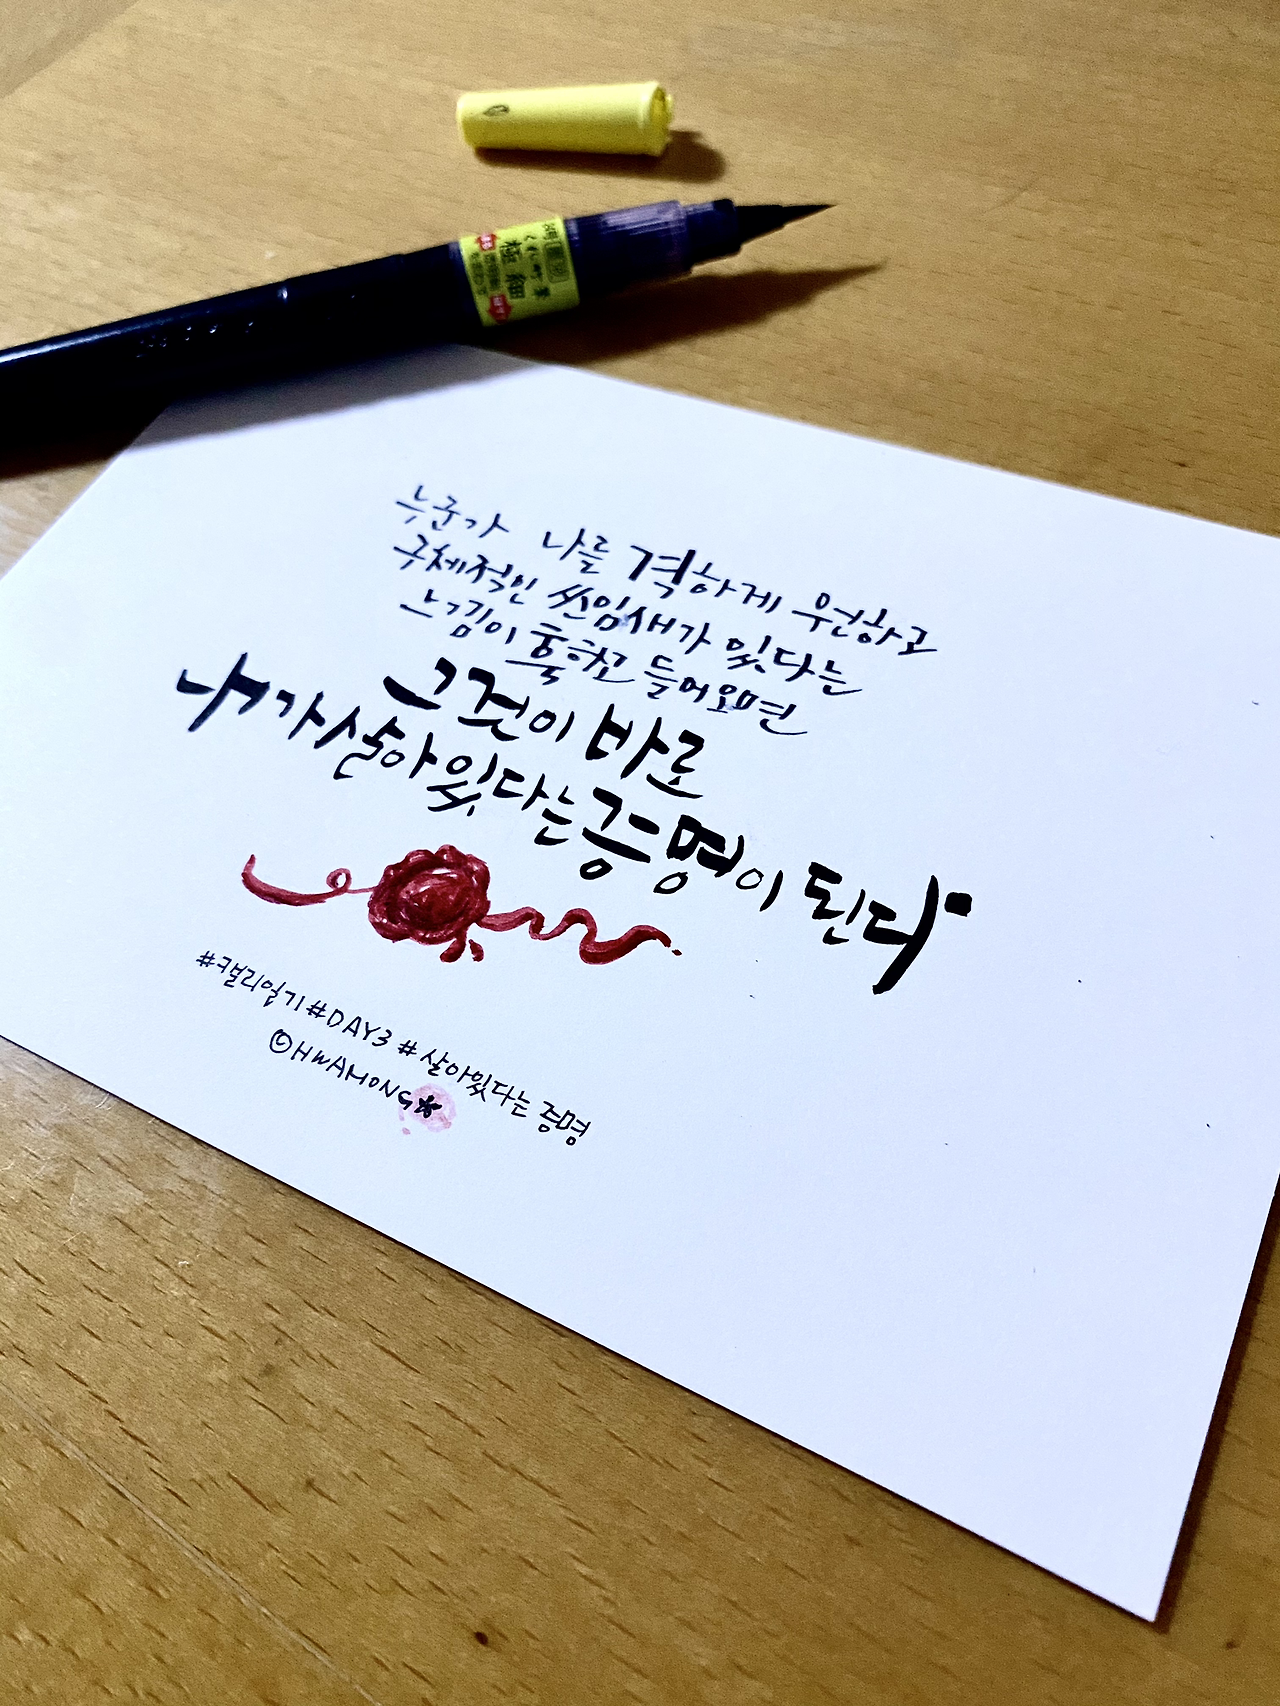 くれ竹筆
極細
누군가 나를 격하게 원하고
구체적인 쓰임새가 있다는
느낌이 훅하고 들어오면
그것이 바로
내가 살아있다는 증명이 된다.
#캘리일기 #DAY3 #살아있다는 증명
©HWAMONG